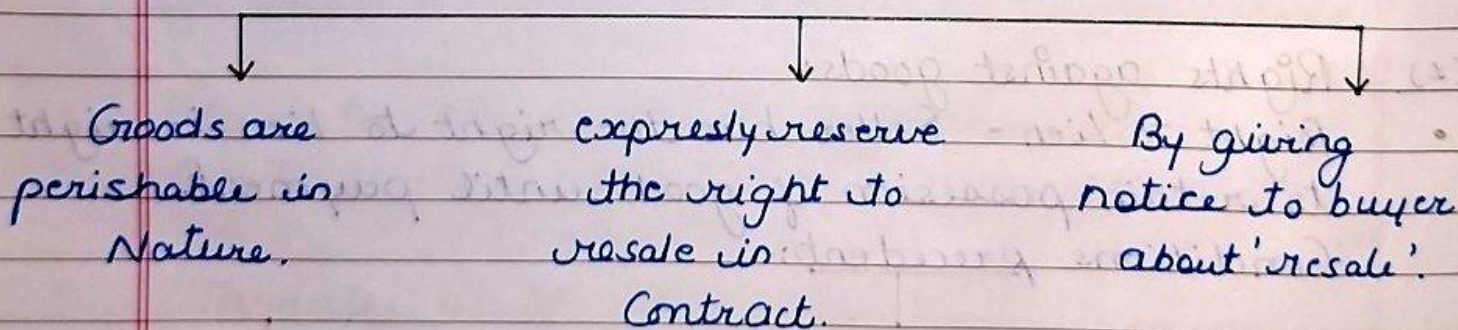 Goods are
perishable in
Nature.
expresly reserve
the right to
resale in
Contract.
By giving
notice to buyer
about 'resale'.